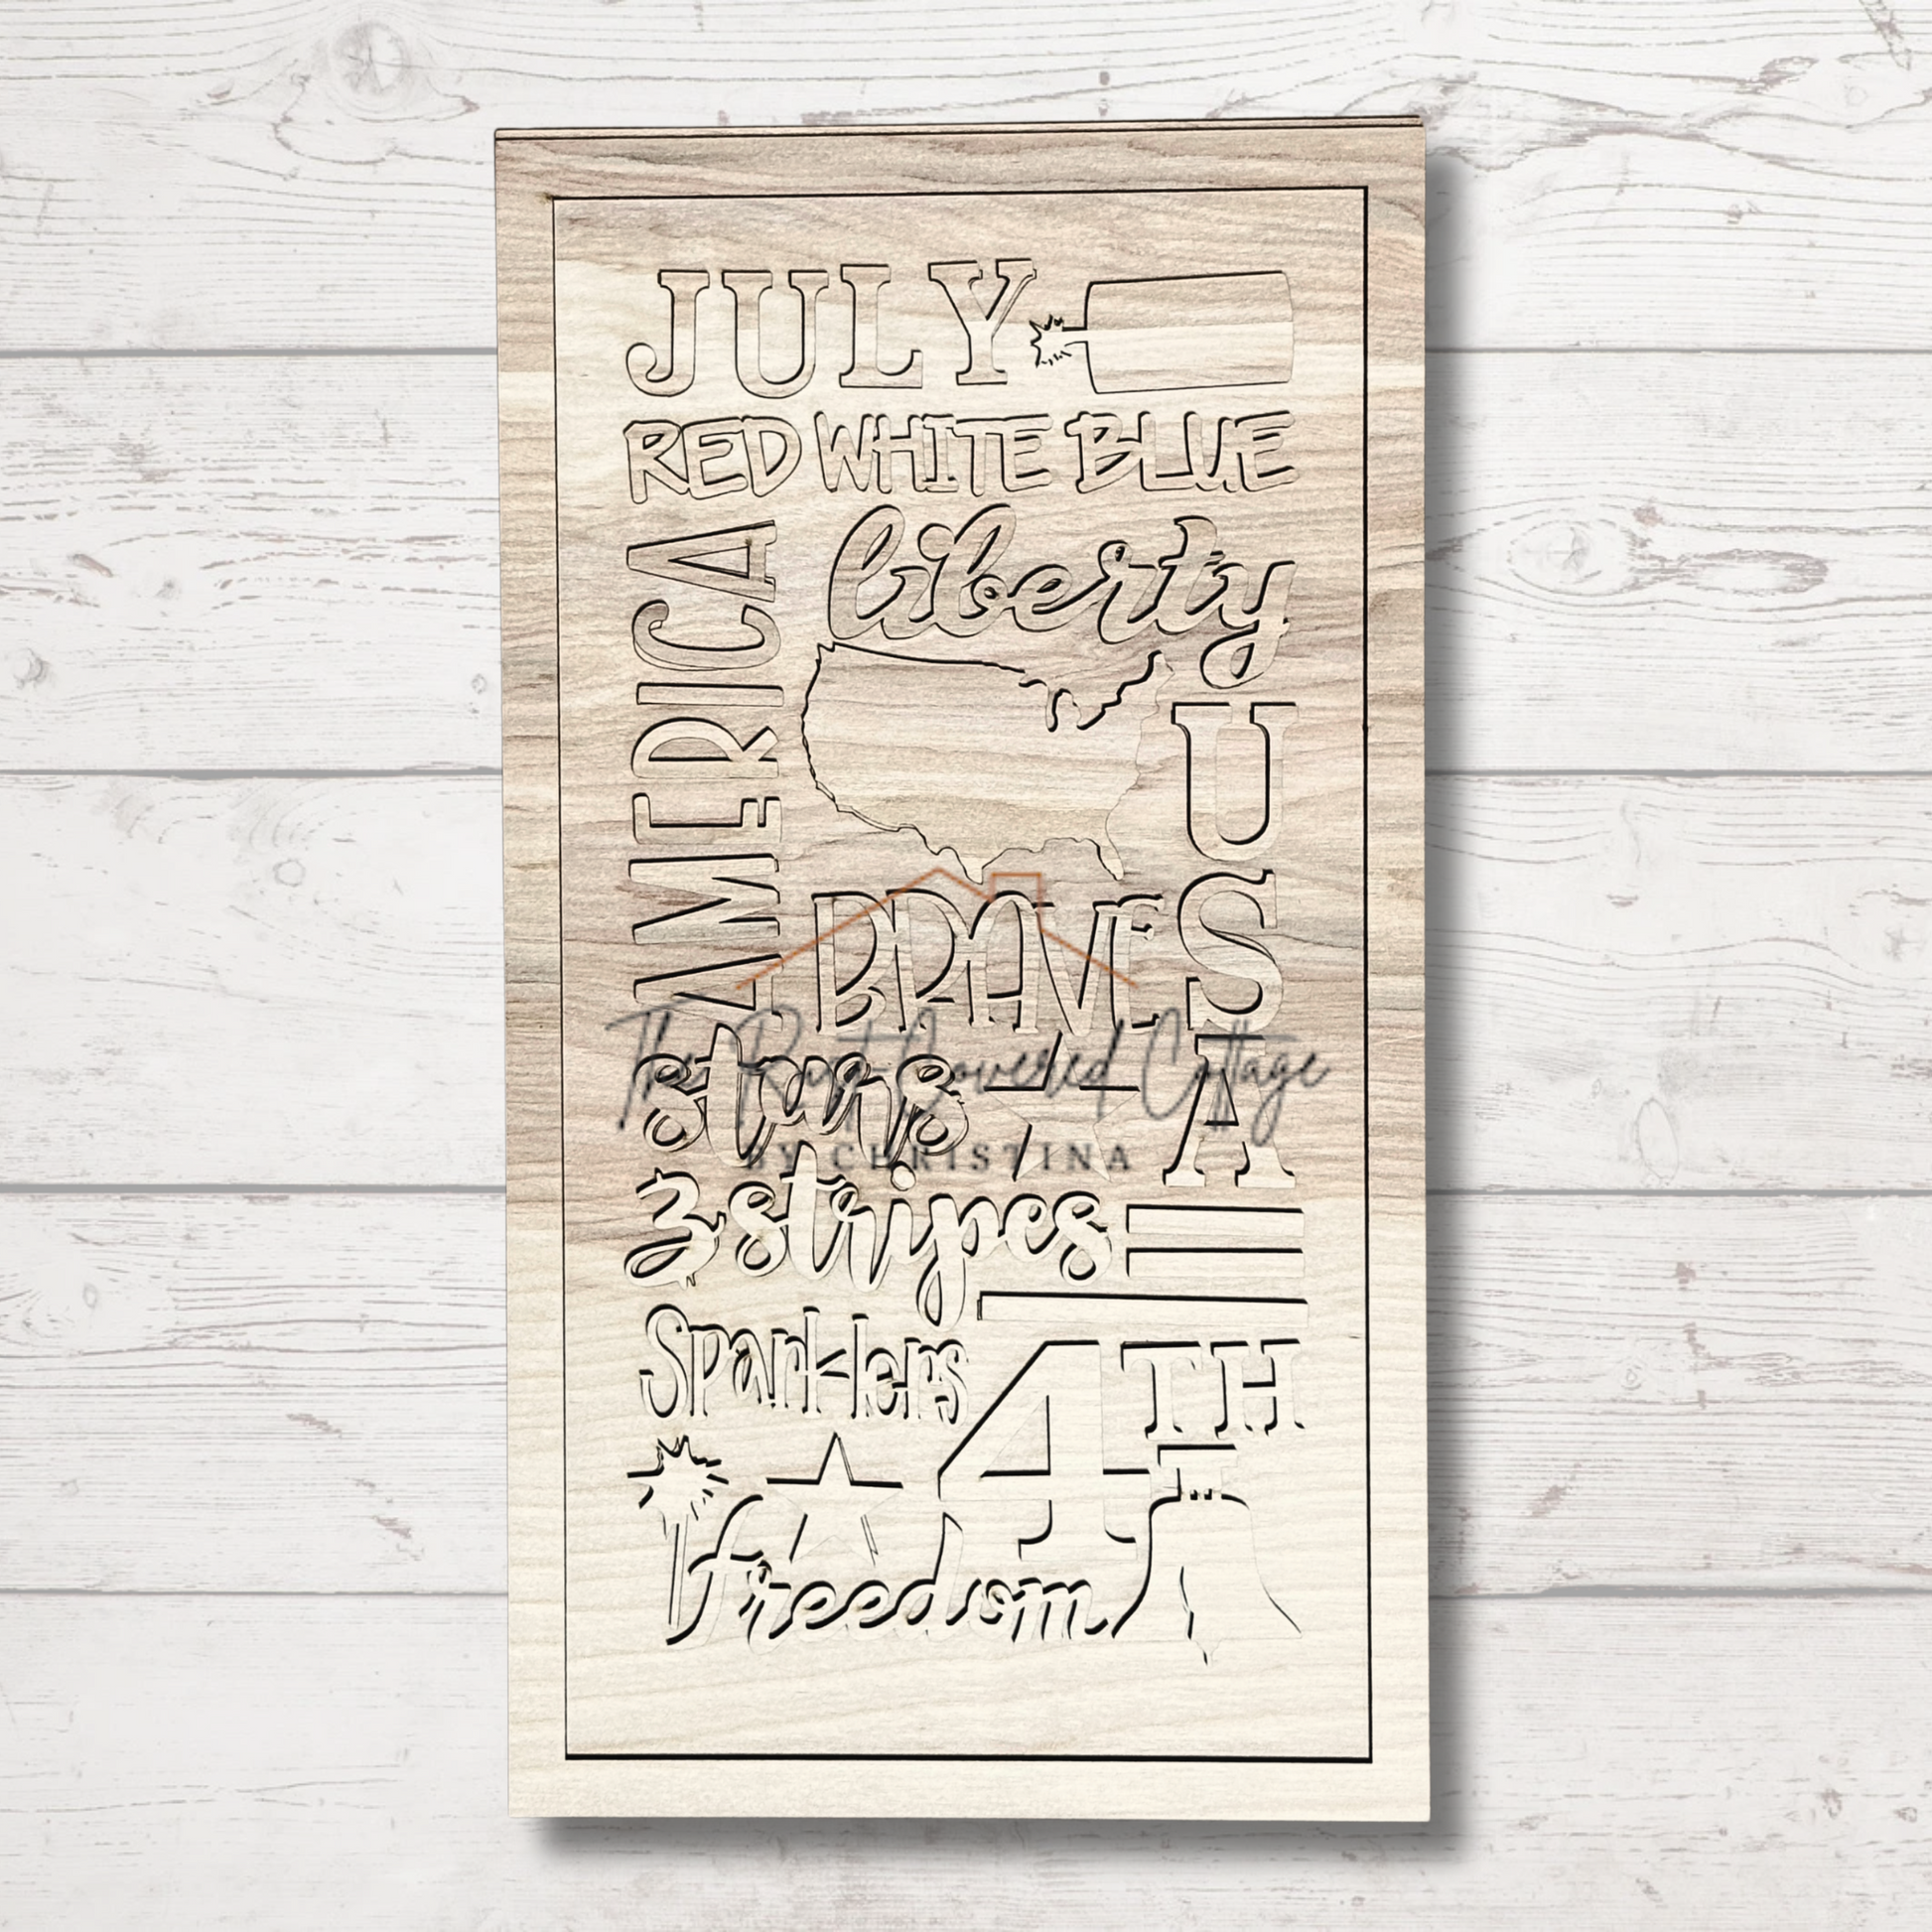 JULY
RED WHITE BLUE
liberty
AMERICA
USA
BRAVE
The Rust Covered Cottage
BY CHRISTINA
stars
& stripes
Sparklers
4TH
freedom